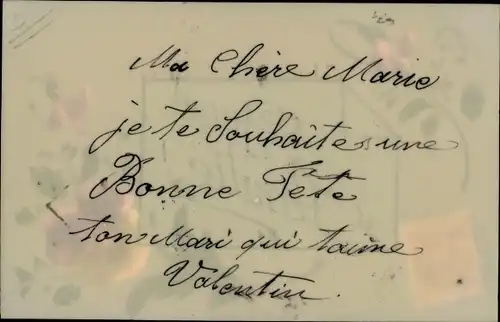 Ma Chère Marie
je te Souhaites une
Bonne Fête
ton Mari qui taime
Valentin.